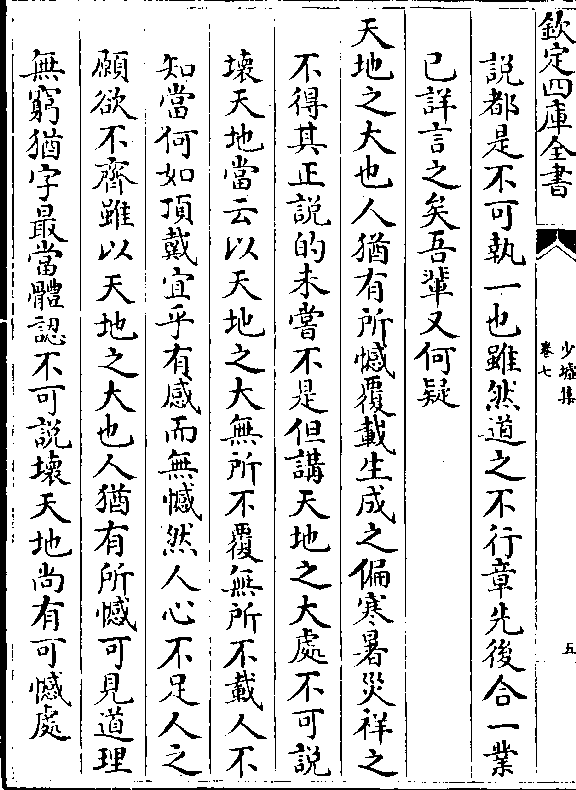 欽定四庫全書
少墟集
卷七
五
說都是不可執一也雖然道之不行章先後合一業
已詳言之矣吾輩又何疑
天地之大也人猶有所憾覆載生成之偏寒暑災祥之
不得其正說的未嘗不是但講天地之大處不可說
壞天地當云以天地之大無所不覆無所不載人不
知當何如頂戴宜乎有感而無憾然人心不足人之
願欲不齊雖以天地之大也人猶有所憾可見道理
無窮猶字最當體認不可說壞天地尚有可憾處